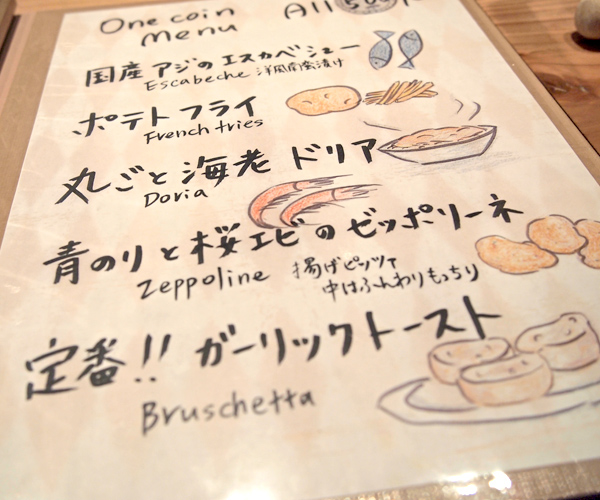 One coin Menu
All 500
国産アジのエスカベシュー
Escabeche 洋風南蛮漬け
ポテトフライ
French fries
丸ごと海老ドリア
Doria
青のりと桜エビのゼッポリーネ
Zeppoline 揚げピッツァ
中はふんわりもっちり
定番!! ガーリックトースト
Bruschetta